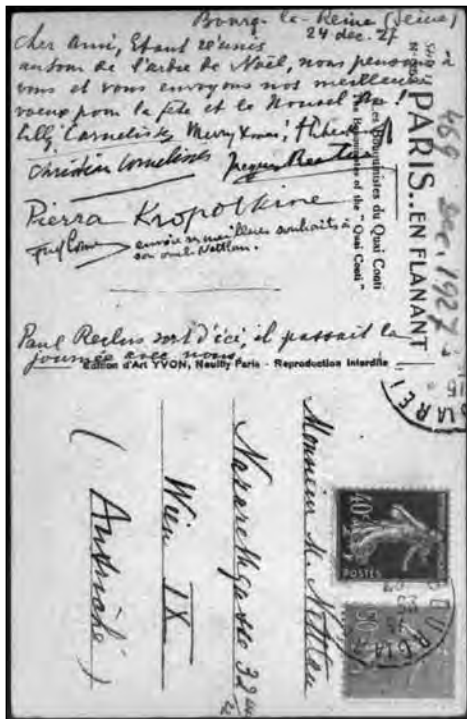 Bourg-la-Reine (Seine)
24 dec. 27
Cher ami, Etant réunis
autour de l'arbre de Noël, nous pensons à
vous et vous envoyons nos meilleurs
voeux pour la fête et le Nouvel An!
Lilly Cornelissen Merry Xmas!
Christian Cornelissen Jacques Reclus
Pierra Kropotkine
envoie meilleurs souhaits à
son Nettlau.
Paul Reclus sort d'ici, il passait la
journée avec nous.
Edition d'Art YVON, Neuilly Paris - Reproduction Interdite
469 Dec. 1927
PARIS.. EN FLANANT
Les Bouquinistes du Quai Conti
The Bookinistes of the "Quai Conti"
Monsieur M. Nettlau
Nazarethgasse 32
Wien IX
(Autriche)
40c
POSTES